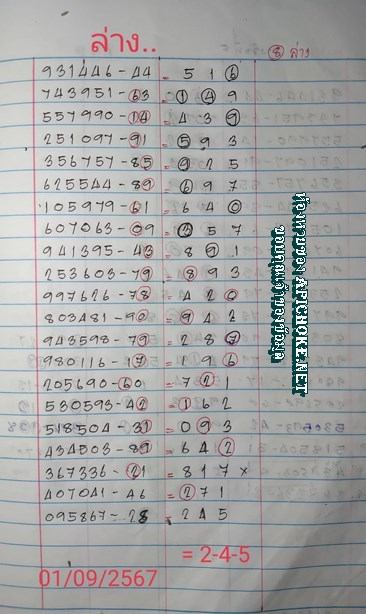 ล่าง..
⑧ ล่าง
931446-44 = 516
743951-63 = 149
557990-14 = 439
251097-91 = 593
356757-85 = 925
625544-89 = 697
105979-61 = 640
607063-09 = 057
941395-43 = 891
253603-79 = 893
997626-78 = 420
803481-90 = 942
943598-79 = 287
980116-17 = 196
205690-60 = 721
530593-42 = 162
518504-31 = 093
434503-89 = 642
367336-21 = 817×
407041-46 = 271
095867-28 = 245
= 2-4-5
01/09/2567